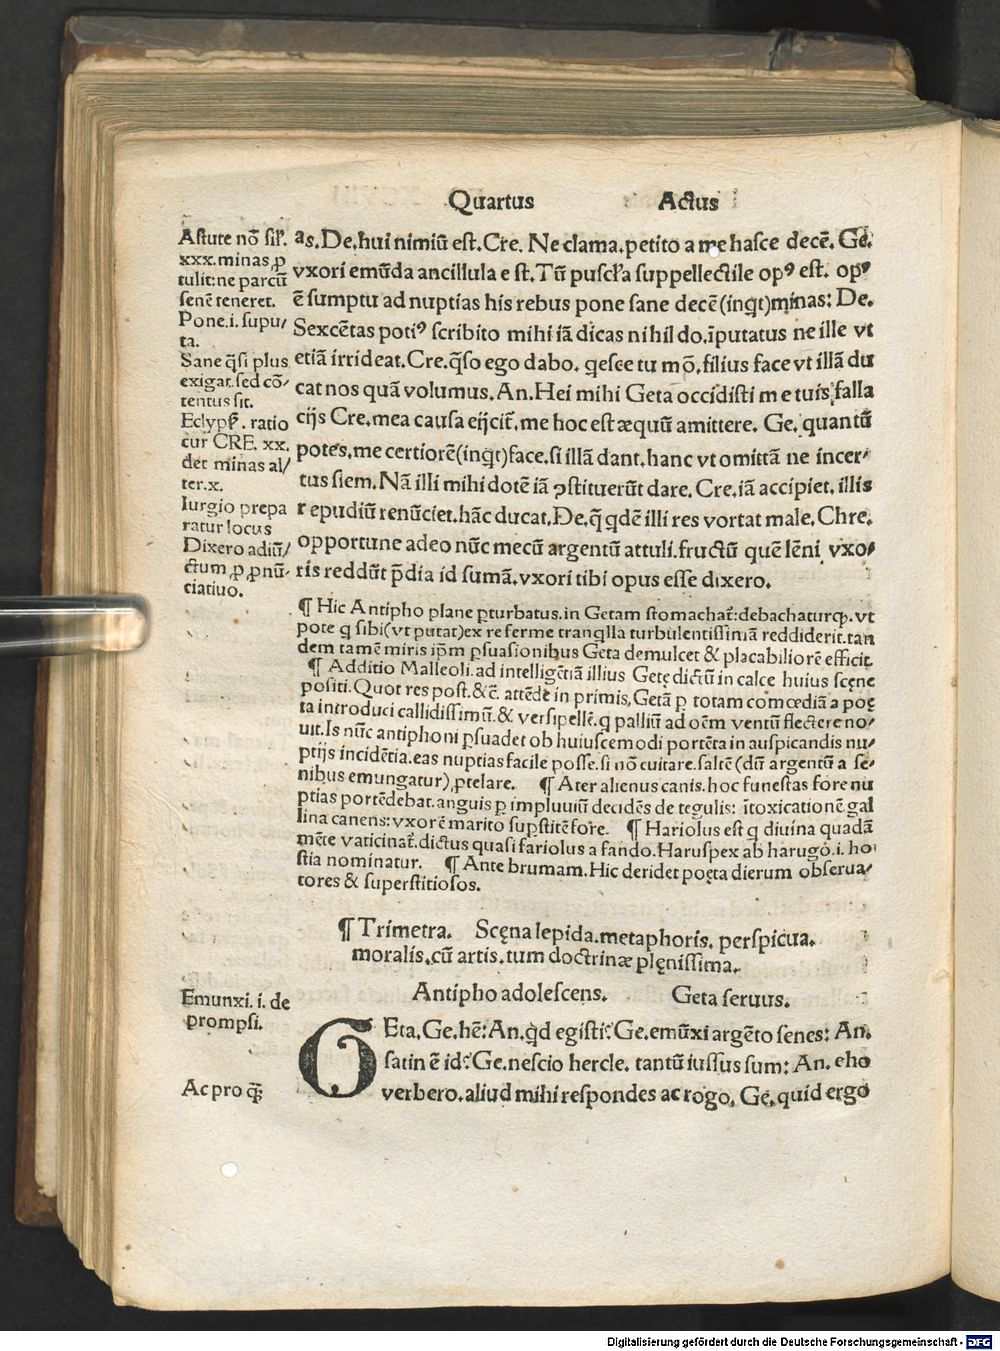 Quartus Actus
Astute nō sil'.
xxx.minas ꝓ
tulit:ne parcū
senē teneret.
Pone.i.supu/
ta.
Sane q̄si plus
exigat.sed cō/
tentus sit.
Eclyps̄. ratio
cur CRE. xx.
det minas al/
ter.x.
Iurgio prepa
ratur locus
Dixero adiū/
ctum,ꝓ ꝓnū/
ciatiuo.
as.De,hui nimiū est.Cre. Ne clama.petito a me hasce decē. Ge.
vxori emūda ancillula e st.Tū puscl'a suppellectile opꝰ est. opꝰ
ē sumptu ad nuptias his rebus pone sane decē(inqt)minas: De.
Sexcētas potiꝰ scribito mihi iā dicas nihil do.īputatus ne ille vt
etiā irrideat.Cre.q̄so ego dabo. qesce tu mō,filius face vt illā du
cat nos quā volumus.An.Hei mihi Geta occidisti me tuis falla
cijs Cre.mea causa eijcit̄,me hoc est æquū amittere. Ge. quantū
potes,me certiorē(inqt)face.si illā dant.hanc vt omittā ne incer/
tus siem.Nā illi mihi dotē iā ꝯstituerūt dare. Cre.iā accipiet. illis
repudiū renūciet.hāc ducat.De,q̄ qdē illi res vortat male.Chre.
opportune adeo nūc mecū argentū attuli.fructū quē lēni vxo/
ris reddūt p̄dia id sumā.vxori tibi opus esse dixero.
¶ Hic Antipho plane ꝑturbatus.in Getam stomachat̄:debachaturqꝫ.vt
pote q sibi(vt putat)ex re ferme tranqlla turbulentissimā reddiderit.tan
dem tamē miris ip̄m ꝑsuasionibus Geta demulcet & placabiliorē efficit.
¶ Additio Malleoli.ad intelligētiā illius Getę dictū in calce huius scęne
positi.Quot res post.&c̄. attēde in primis,Getā ꝑ totam comœdiā a poę
ta introduci callidissimū.& versipellē.q palliū ad oēm ventū flectere no/
uit.Is nūc antiphoni ꝑsuadet ob huiuscemodi portēta in auspicandis nu/
ptijs incidētia.eas nuptias facile posse.si nō euitare.saltē(dū argentū a se/
nibus emungatur),ꝓtelare. ¶ Ater alienus canis.hoc funestas fore nu
ptias portēdebat.anguis ꝑ impluuiū decidēs de tegulis: ītoxicationē.gal
lina canens:vxorē marito supstitē fore. ¶ Hariolus est q diuina quadā
mēte vaticinat̄.dictus quasi fariolus a fando.Haruspex ab harugo.i. ho
stia nominatur. ¶ Ante brumam.Hic deridet poęta dierum obserua/
tores & superstitiosos.
¶ Trimetra. Scęna lepida.metaphoris. perspicua.
moralis.cū artis.tum doctrinæ plęnissima.
Antipho adolescens. Geta seruus.
Emunxi.i.de
prompsi.
Ac pro qꝫ
GEta,Ge.hē:An.qd egisti:Ge.emūxi argēto senes: An.
satin ē id:Ge.nescio hercle. tantū iussus sum: An. eho
verbero.aliud mihi respondes ac rogo. Ge.quid ergo
Digitalisierung gefördert durch die Deutsche Forschungsgemeinschaft - DFG